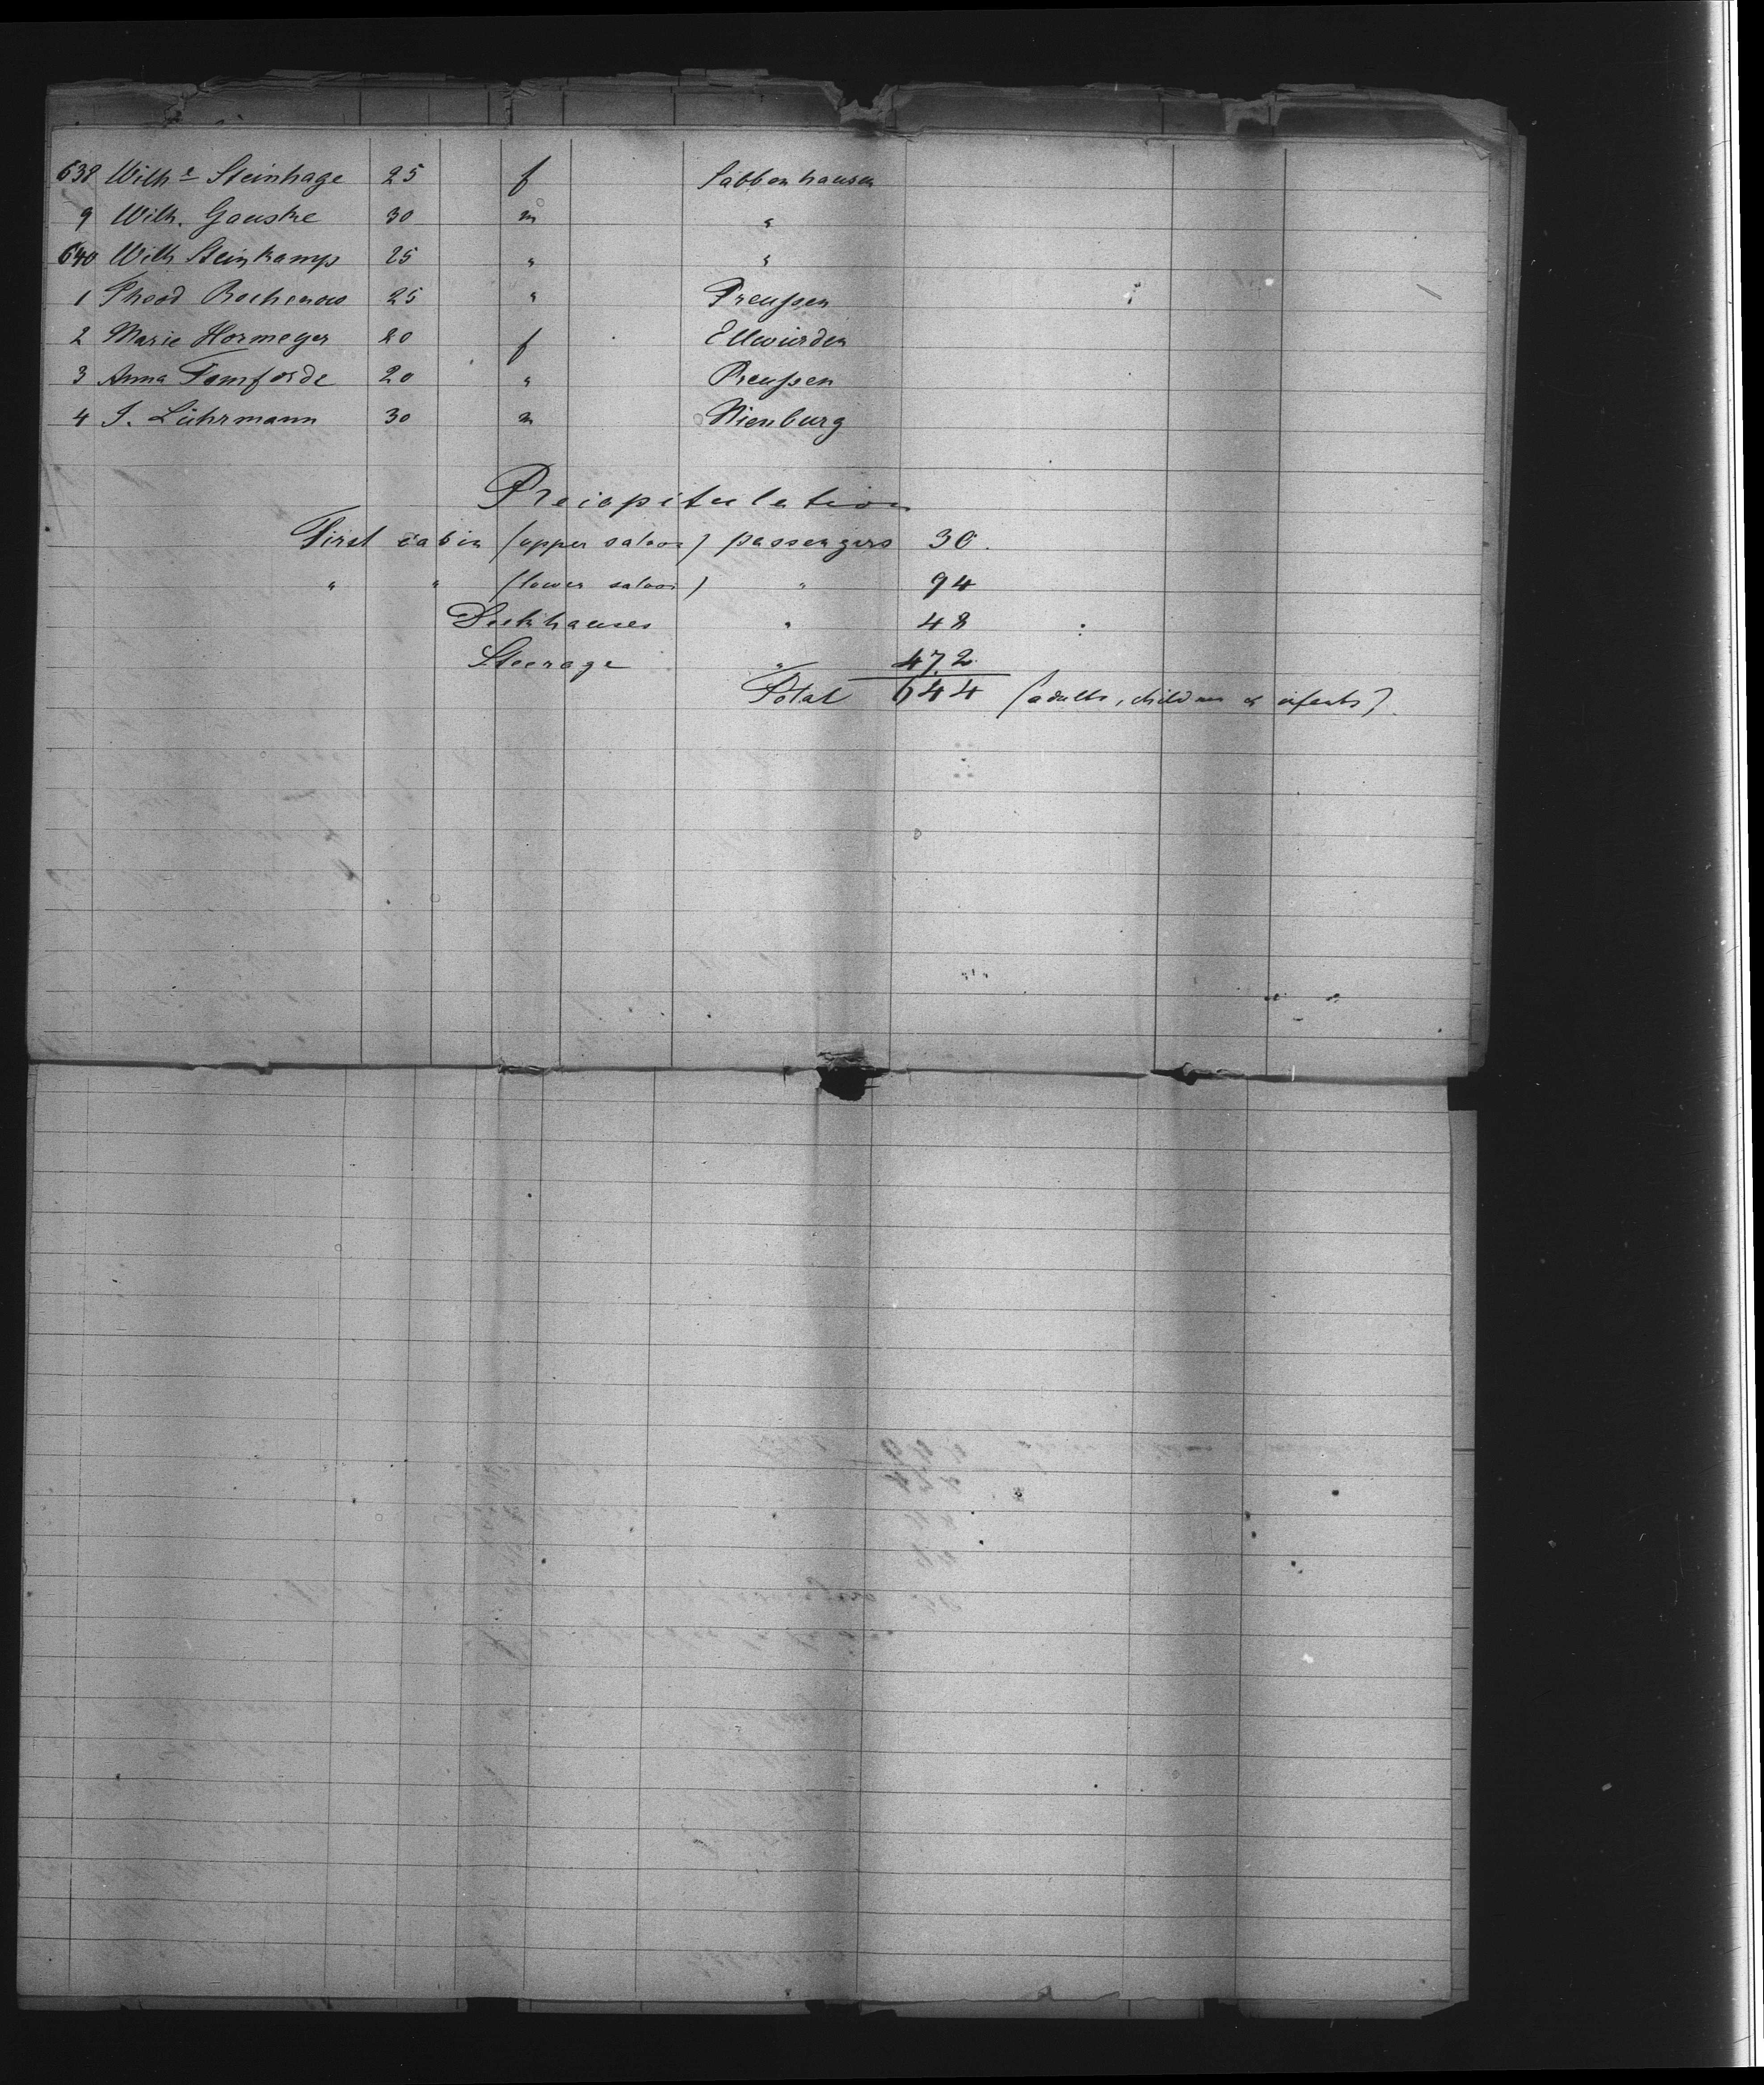 638 Wilhe Steinhage 25 f Sabbenhausen
9 Wilh. Gauske 30 m "
640 Wilh Steinkamp 25 " "
1 Theod Rochenow 25 " Preußen
2 Marie Hormeyer 20 f Ellwürden
3 Anna Tomforde 20 " Preußen
4 J. Lührmann 30 m Nienburg
Reciapitulation
First cabin (upper saloon) passengers 30.
" " (lower saloon) " 94
Deckhauses " 48
Steerage " 472
Total 644 (adults, children & infants).